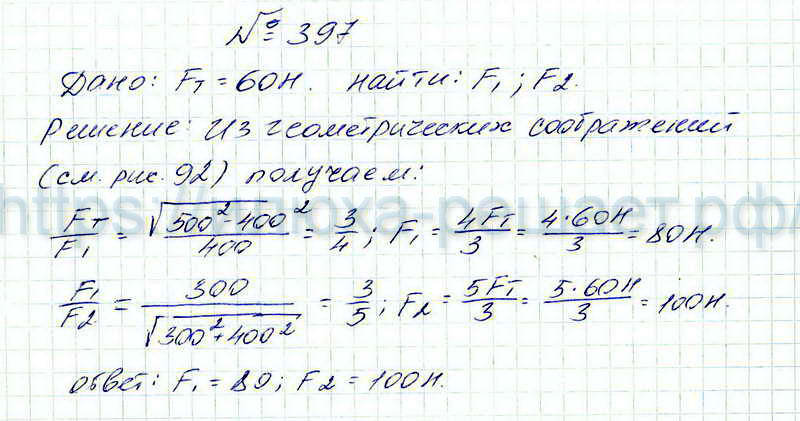 № 397
Дано: Fт = 60Н. найти: F1; F2.
Решение: Из геометрических соображений
(см. рис. 92) получаем:
Fт/F1 = √(500² - 400²)/400 = 3/4; F1 = 4Fт/3 = 4·60Н/3 = 80Н.
F1/F2 = 300/√(300² + 400²) = 3/5; F2 = 5Fт/3 = 5·60Н/3 = 100Н.
ответ: F1 = 80; F2 = 100Н.